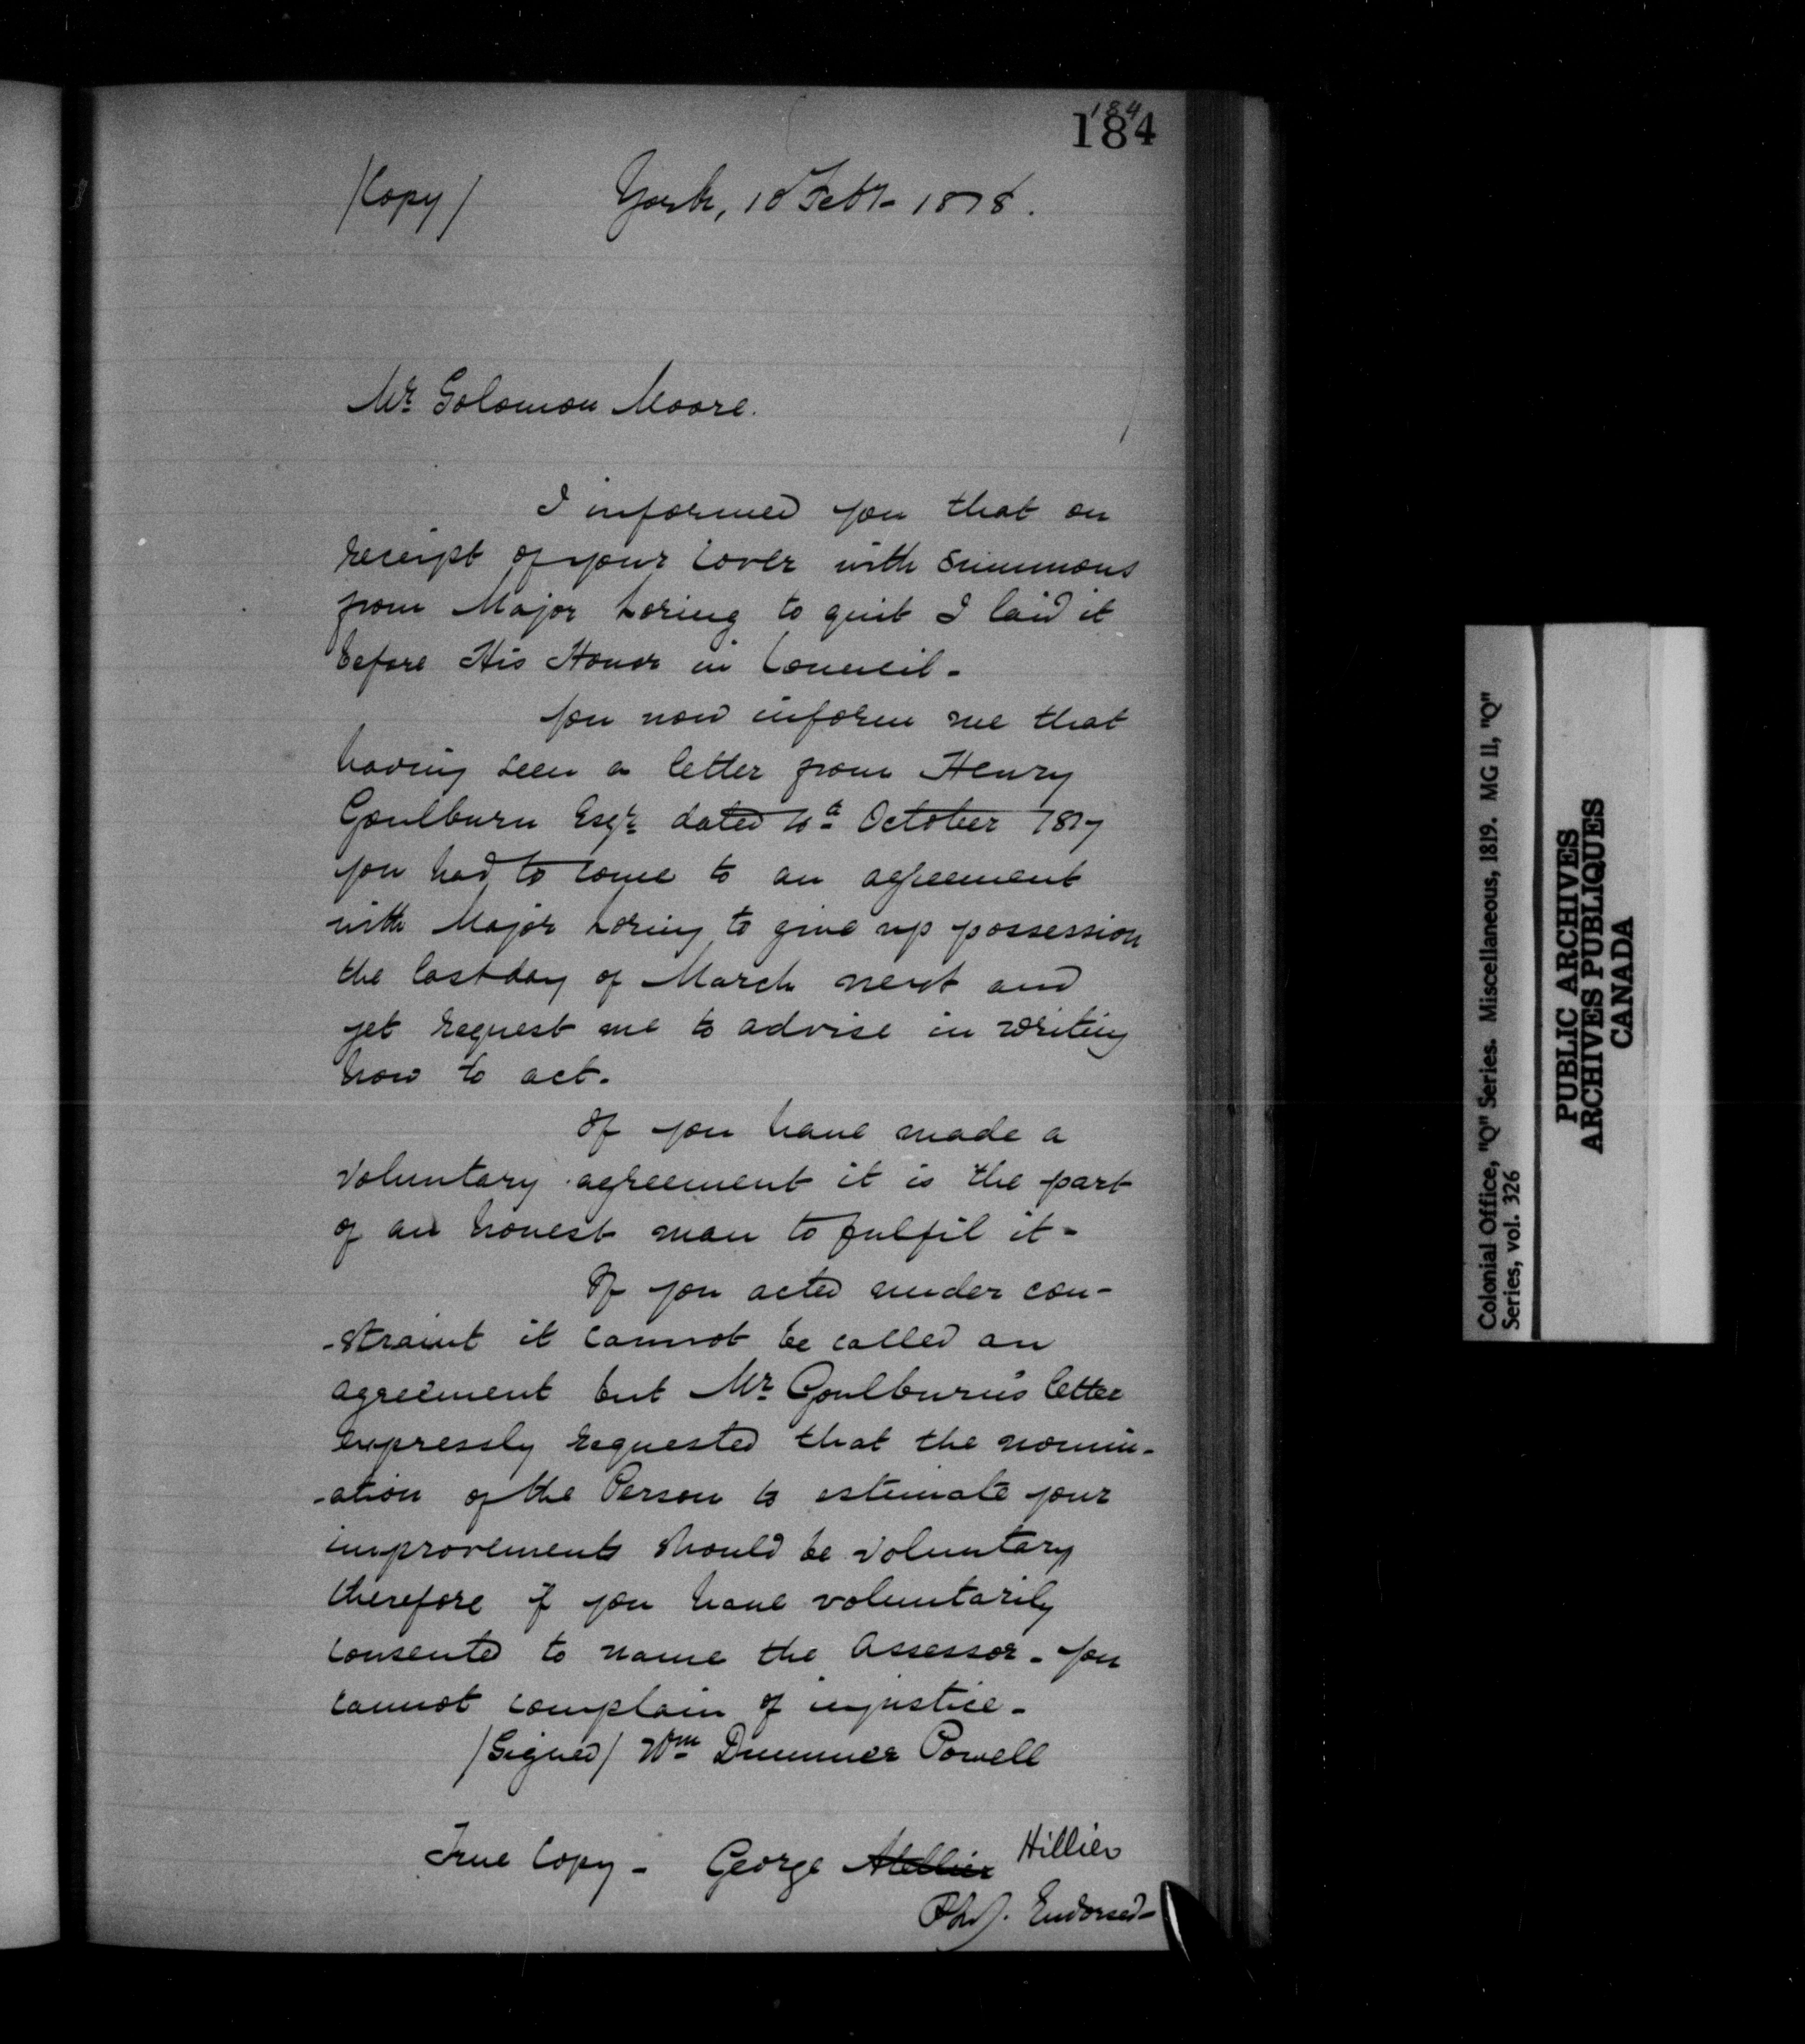 184
184
/Copy/ York, 18 Feby- 1818.
Mr. Solomon Moore.
I informed you that on
receipt of your Cover with Summons
from Major Loring to quit I laid it
before His Honor in Council -
You now inform me that
having seen a letter from Henry
Goulburn Esqr. dated 10th October 1817
you had to come to an agreement
with Major Loring to give up possession
the last day of March next and
yet request me to advise in writing
how to act.
If you have made a
voluntary agreement it is the part
of an honest man to fulfil it -
If you acted under con-
-straint it cannot be called an
agreement but Mr. Goulburn's letter
expressly requested that the nomin-
-ation of the Person to estimate your
improvements should be voluntary
therefore if you have voluntarily
consented to name the Assessor - you
cannot complain of injustice -
/Signed/ Wm Dummer Powell
True Copy - George Hillier
Endorsed -
Colonial Office, "Q" Series. Miscellaneous, 1819. MG 11, "Q"
Series, vol. 326
PUBLIC ARCHIVES
ARCHIVES PUBLIQUES
CANADA